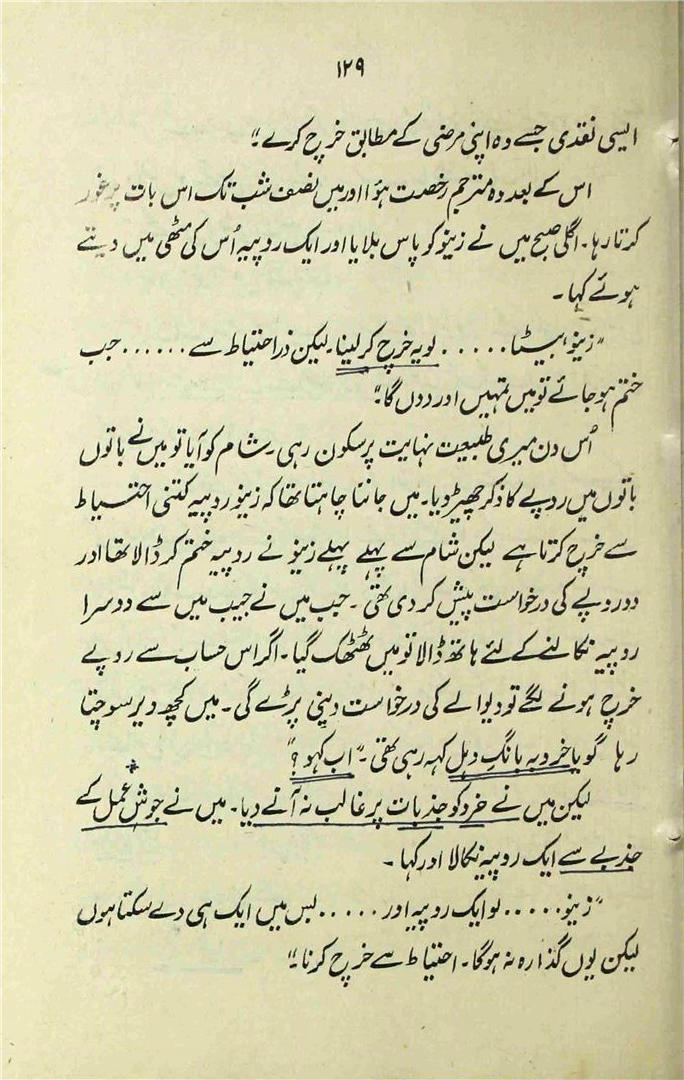 ۱۲۹
ایسی نقدی جسے وہ اپنی مرضی کے مطابق خرچ کرے۔"
اس کے بعد وہ مترجم رخصت ہؤا اور میں نصف شب تک اس بات پر غور
کرتا رہا۔ اگلی صبح میں نے زینو کو پاس بلایا اور ایک روپیہ اُس کی مٹھی میں دیتے
ہوئے کہا۔
"زینو بیٹا ..... لو یہ خرچ کر لینا۔ لیکن ذرا احتیاط سے ...... جب
ختم ہو جائے تو میں تمہیں اور دوں گا۔"
اُس دن میری طبیعت نہایت پر سکون رہی۔ شام کو آیا تو میں نے باتوں
باتوں میں روپے کا ذکر چھیڑ دیا۔ میں جاننا چاہتا تھا کہ زینو روپیہ کتنی احتیاط
سے خرچ کرتا ہے لیکن شام سے پہلے پہلے زینو نے روپیہ ختم کر ڈالا تھا اور
دو روپے کی درخواست پیش کر دی تھی۔ جب میں نے جیب میں سے دوسرا
روپیہ نکالنے کے لئے ہاتھ ڈالا تو میں ٹھٹھک گیا۔ اگر اس حساب سے روپے
خرچ ہونے لگے تو دیوالے کی درخواست دینی پڑے گی۔ میں کچھ دیر سوچتا
رہا گویا خرد بہ بانگِ دہل کہہ رہی تھی۔ "اب کہو؟"
لیکن میں نے خرد کو جذبات پر غالب نہ آنے دیا۔ میں نے جوشِ عمل کے
جذبے سے ایک روپیہ نکالا اور کہا۔
"زینو ..... لو ایک روپیہ اور ..... بس میں ایک ہی دے سکتا ہوں
لیکن یوں گذارہ نہ ہوگا۔ احتیاط سے خرچ کرنا۔"